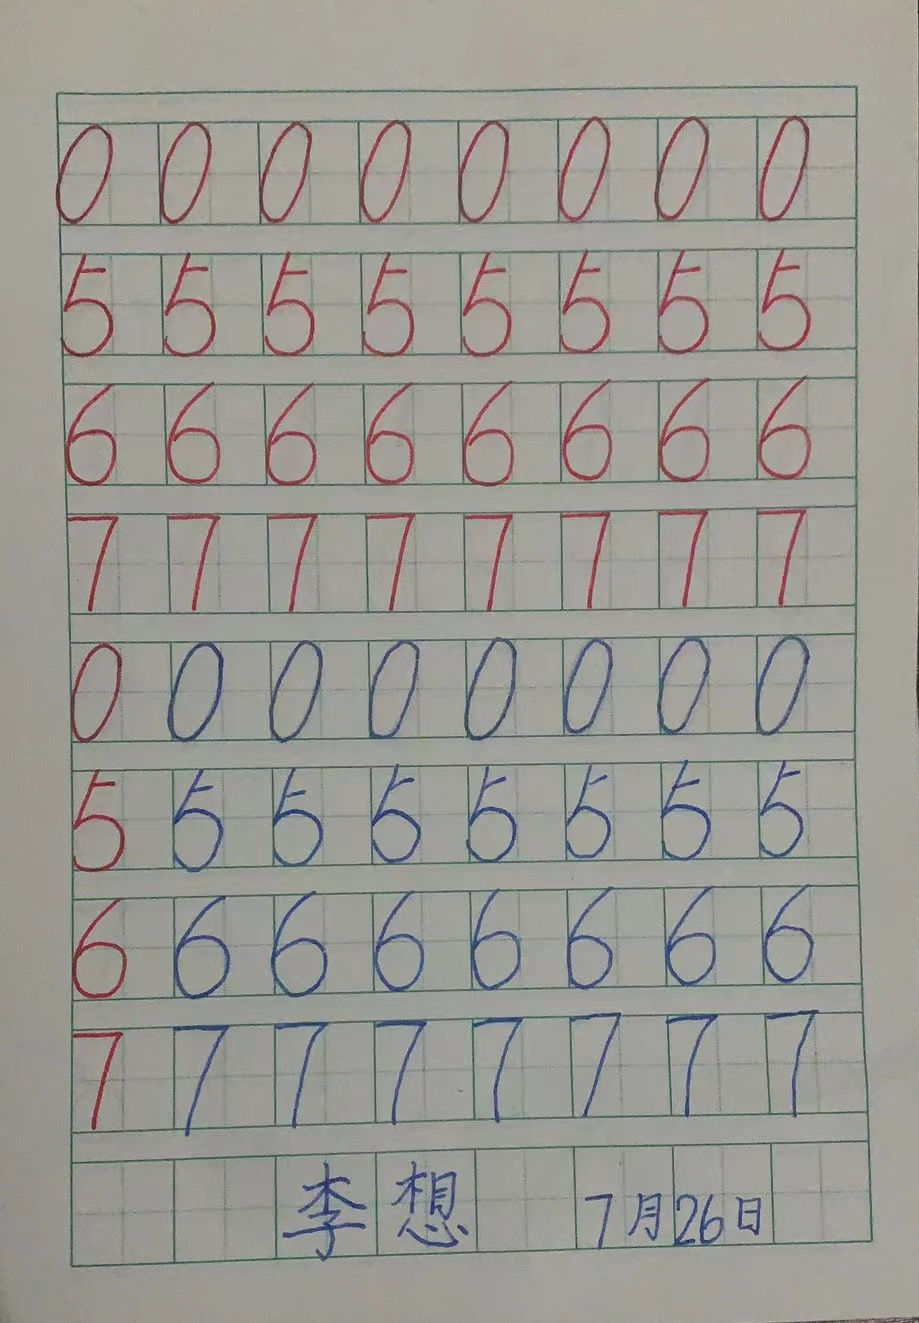 0 0 0 0 0 0 0 0
5 5 5 5 5 5 5 5
6 6 6 6 6 6 6 6
7 7 7 7 7 7 7 7
0 0 0 0 0 0 0 0
5 5 5 5 5 5 5 5
6 6 6 6 6 6 6 6
7 7 7 7 7 7 7 7
李想 7月26日